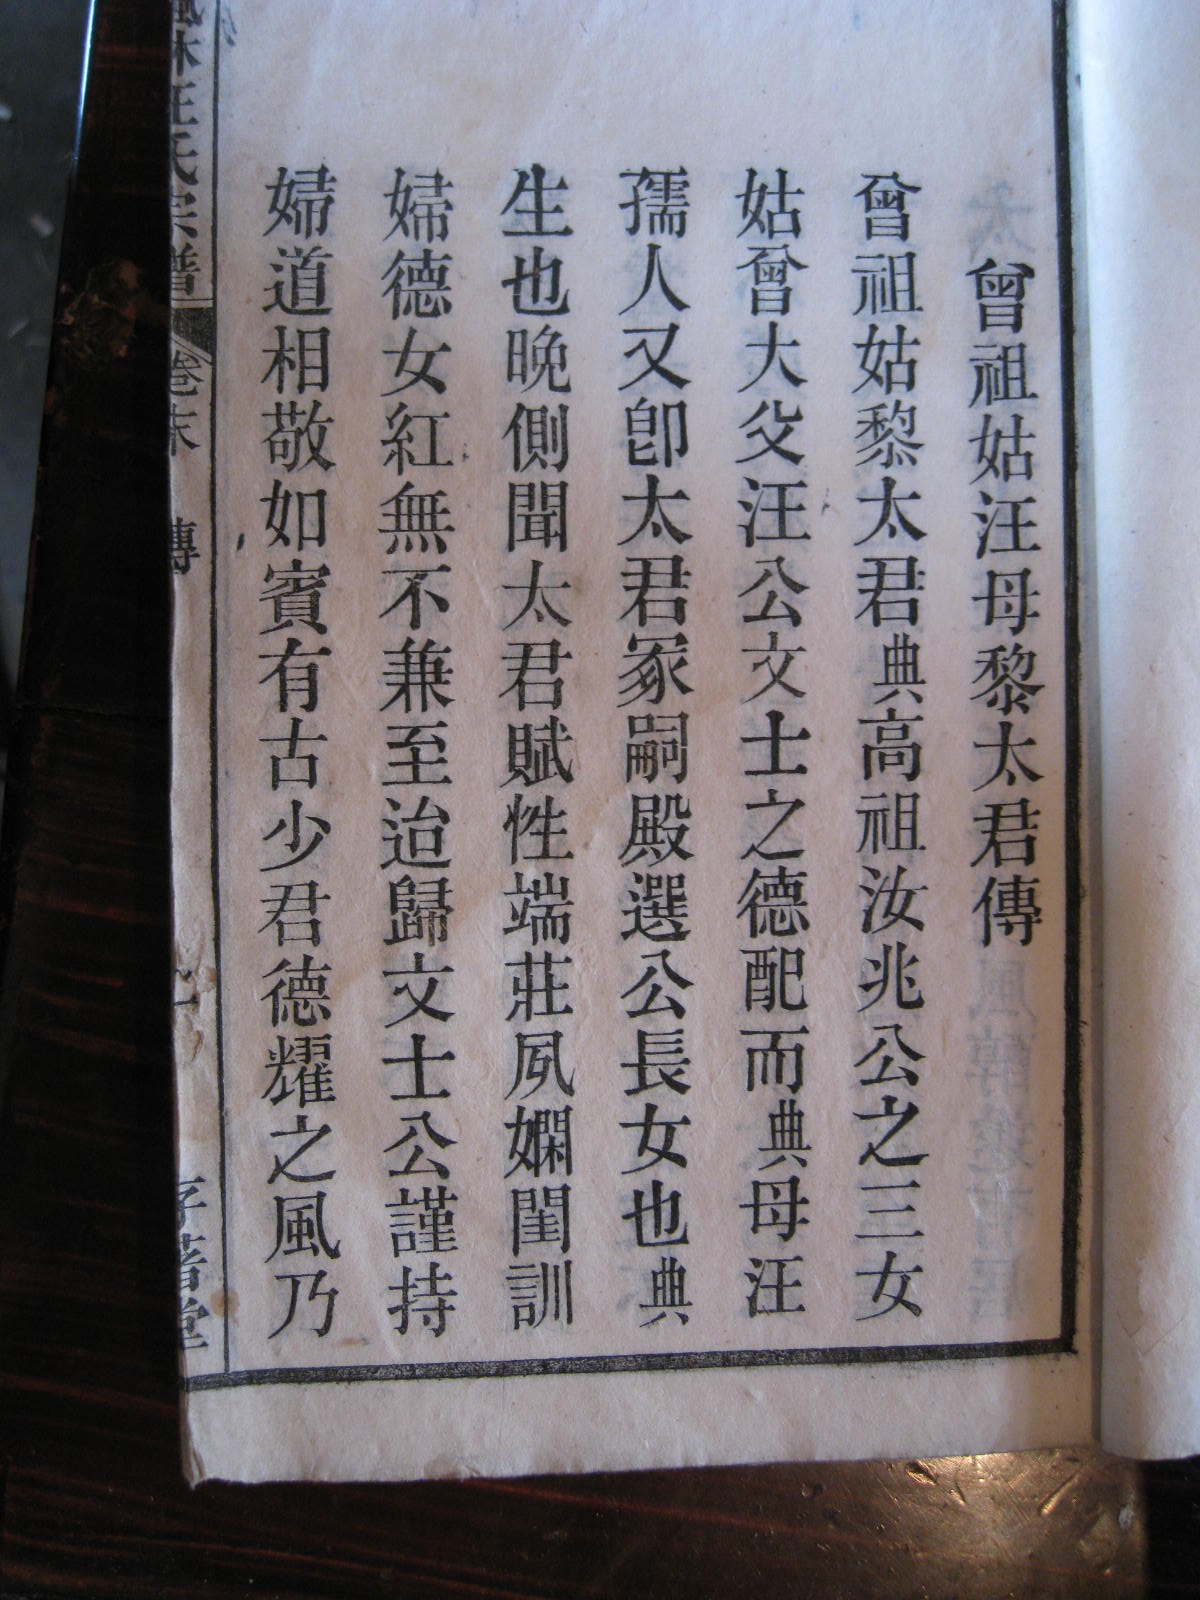 曾祖姑汪母黎太君傳
曾祖姑黎太君典高祖汝兆公之三女
姑曾大父汪公文士之德配而典母汪
孺人又卽太君冢嗣殿選公長女也典
生也晚側聞太君賦性端莊夙嫻閨訓
婦德女紅無不兼至迨歸文士公謹持
婦道相敬如賓有古少君德耀之風乃
林汪氏宗譜
卷末
傳
堂